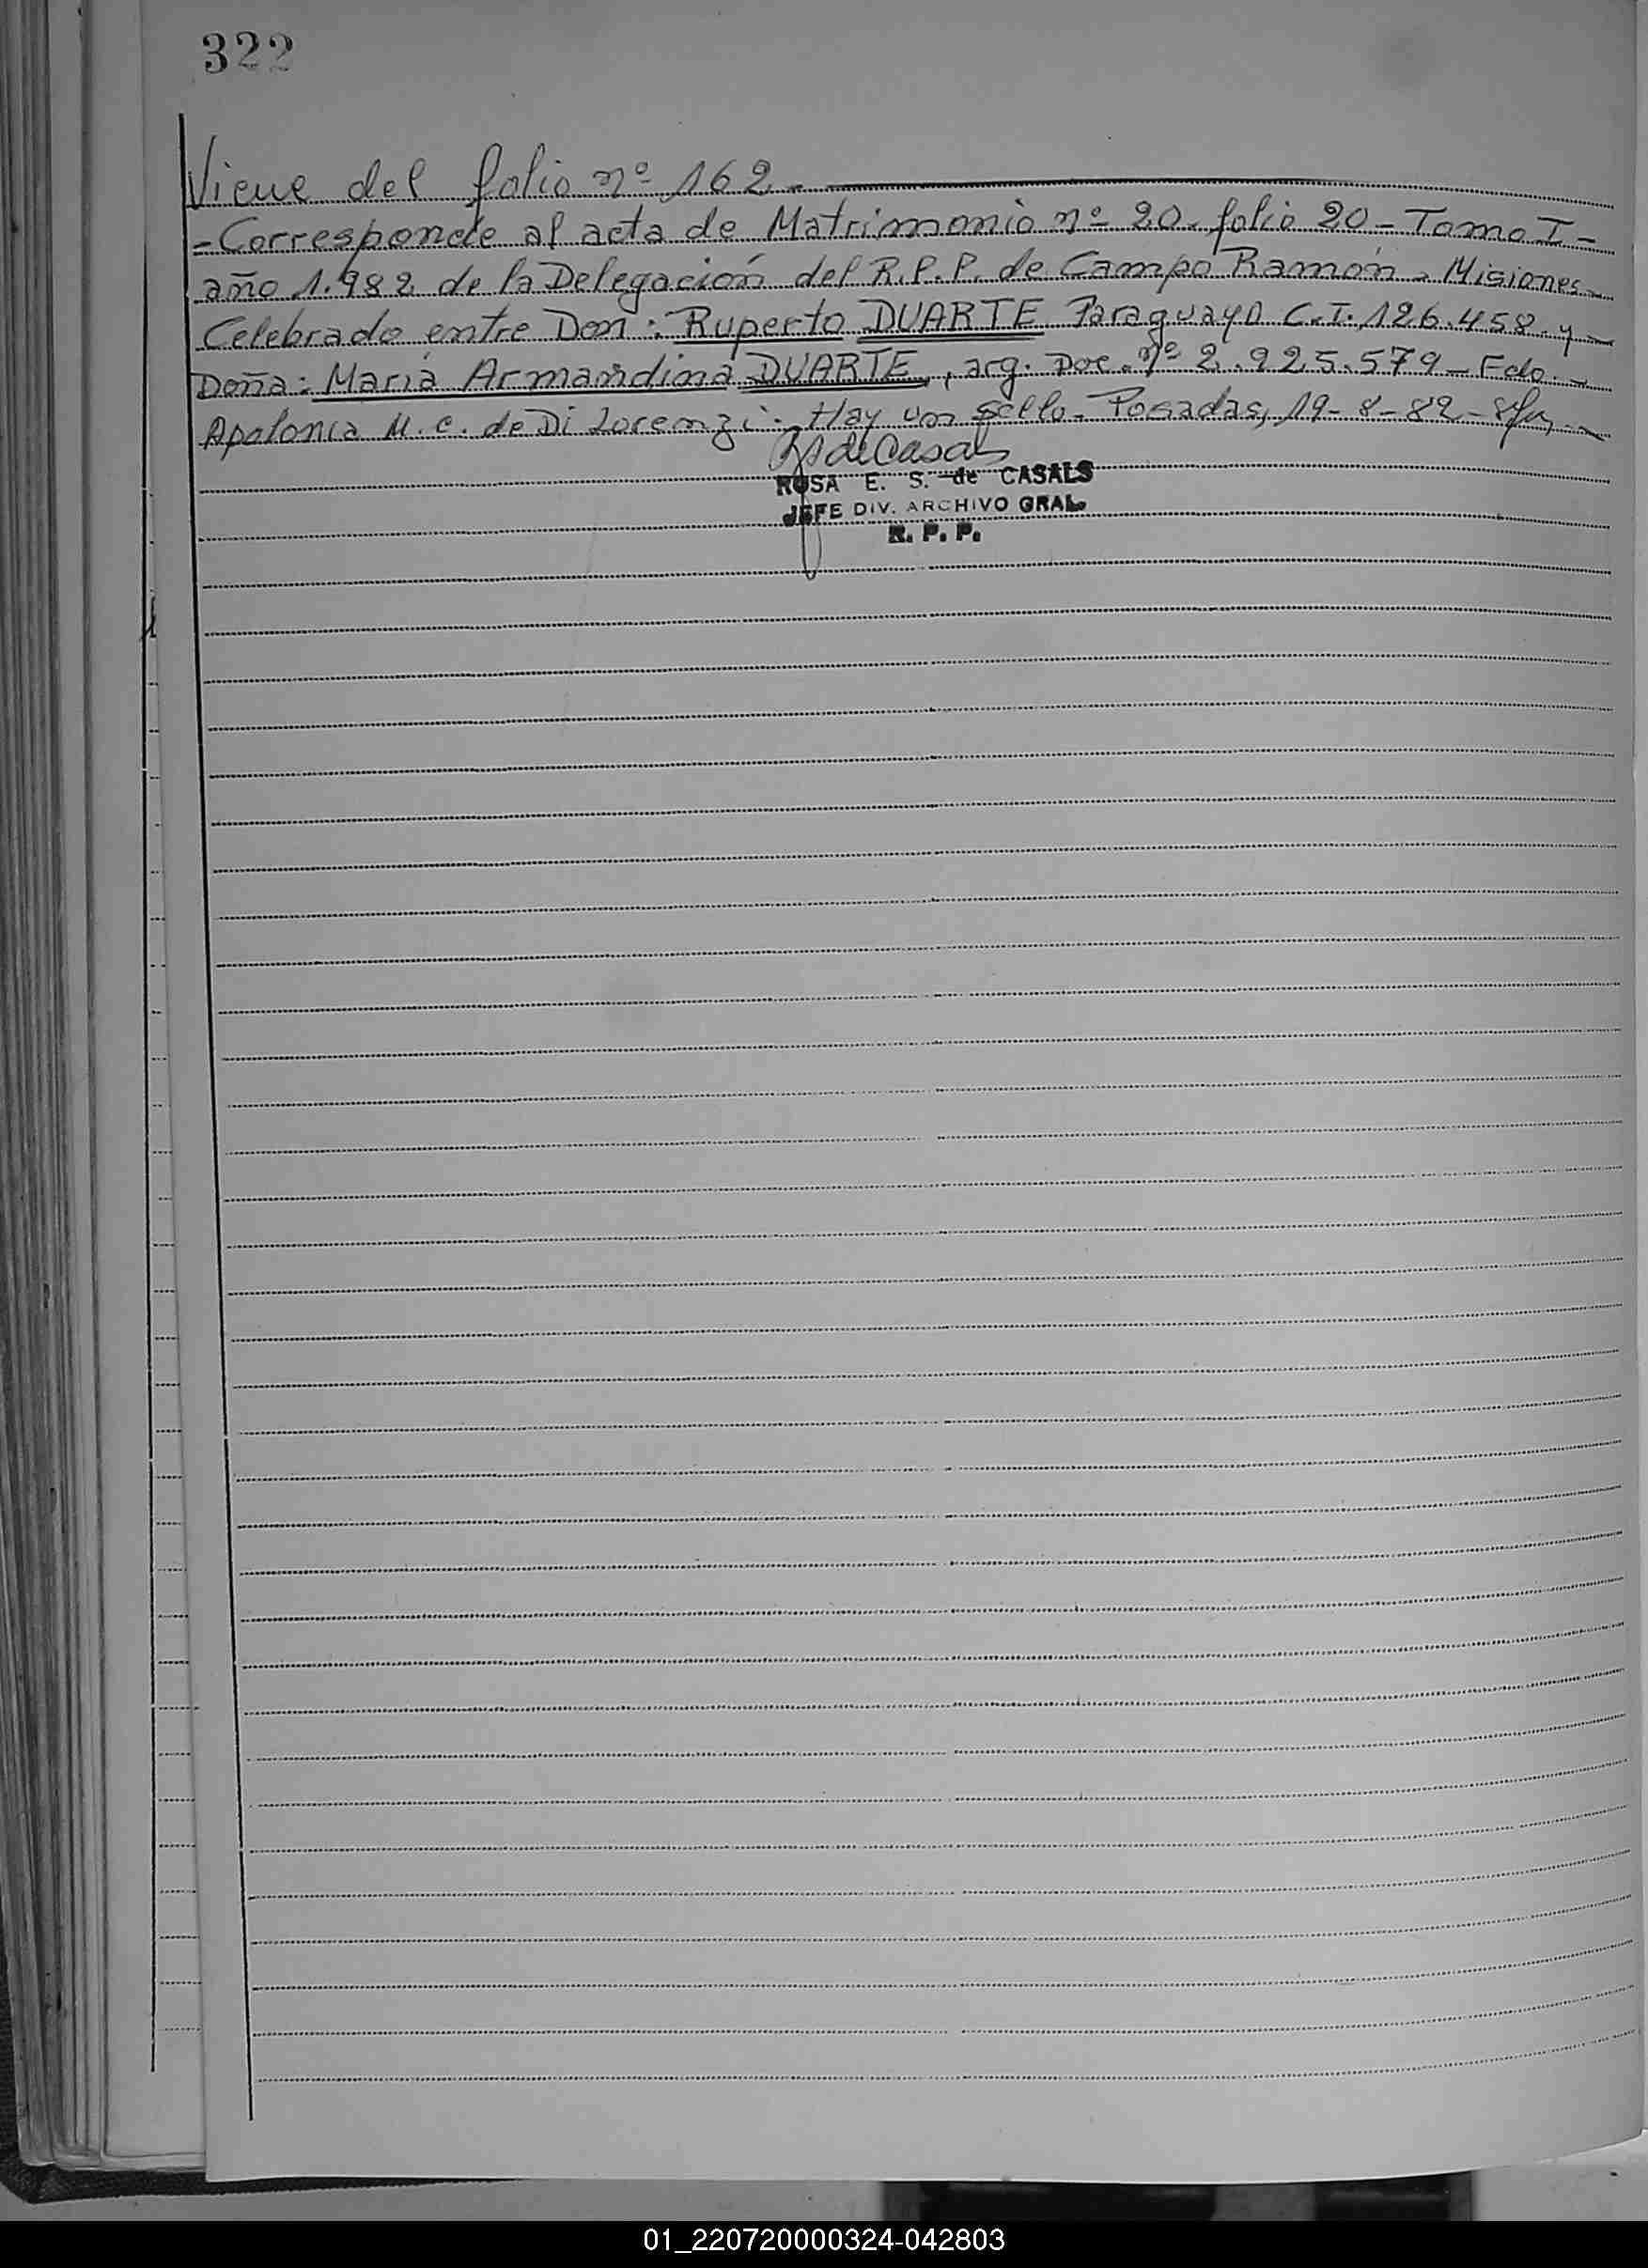 322
Viene del folio nº 162.-
-Corresponde al acta de Matrimonio nº 20- folio 20- Tomo I-
año 1.982 de la Delegación del R.P.P. de Campo Ramón - Misiones-
Celebrado entre Don: Ruperto DUARTE Paraguayo C.I. 126.458. y
Doña: Maria Armandina DUARTE, arg. Doc. nº 2.925.579 - Fdo.-
Apolonia M. C. de Di Lorenzi. Hay un sello. Posadas, 19-8-82-
ROSA E. S. de CASALS
JEFE DIV. ARCHIVO GRAL.
R. P. P.
01_220720000324-042803